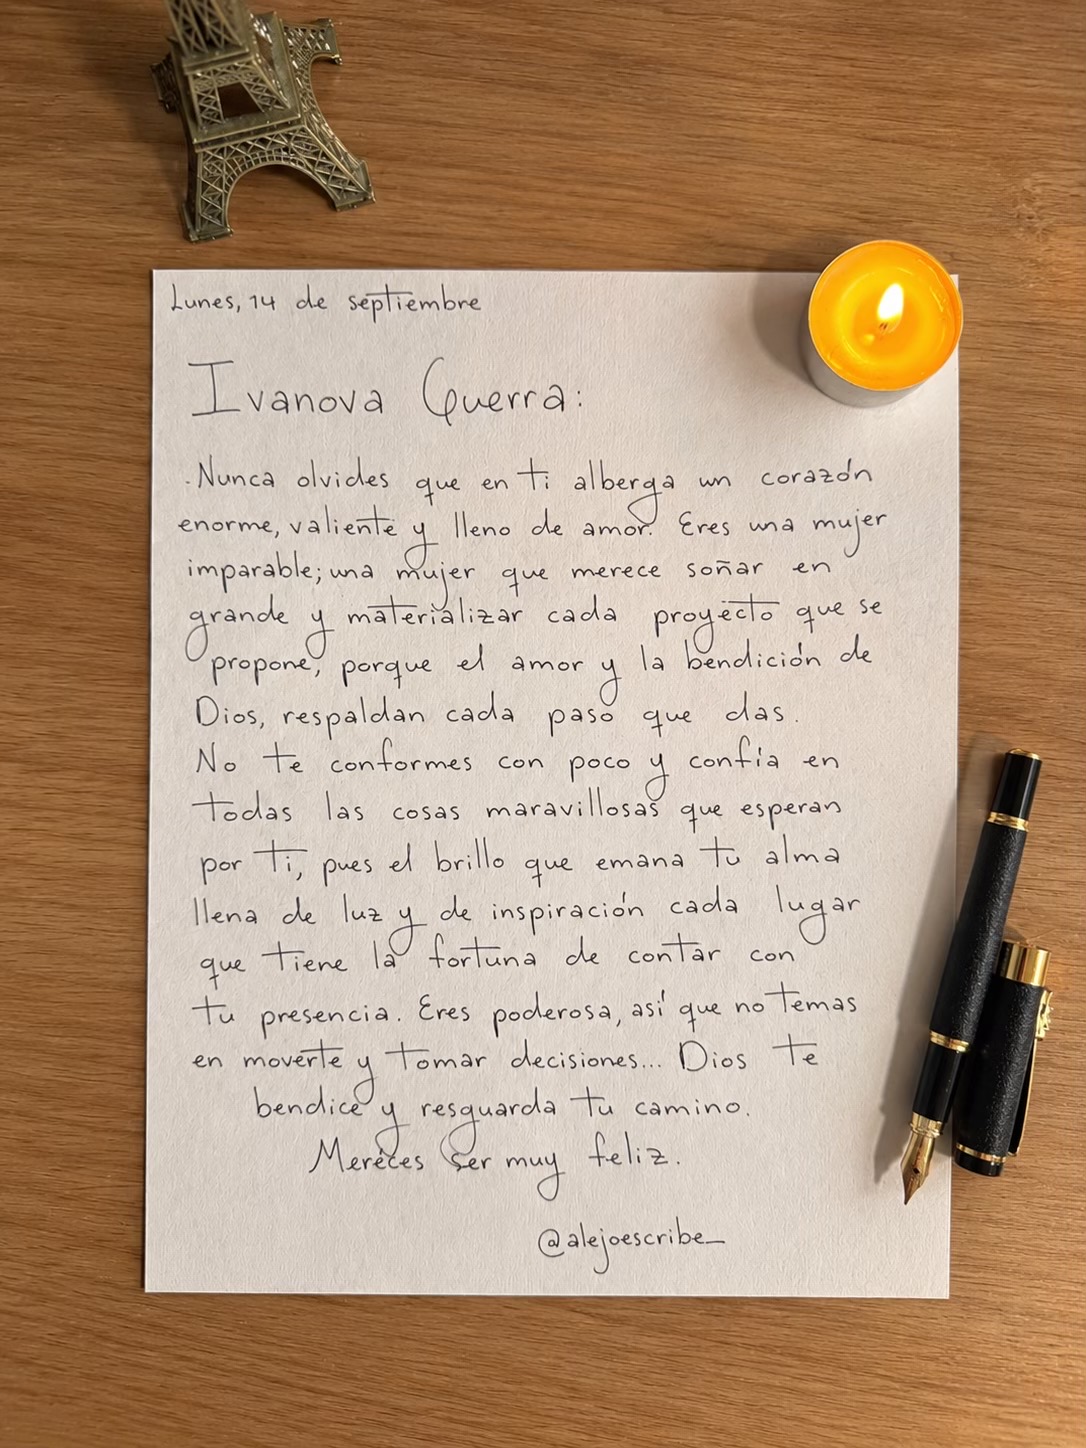 Lunes, 14 de septiembre
Ivanova Guerra:
.Nunca olvides que en ti alberga un corazón
enorme, valiente y lleno de amor. Eres una mujer
imparable; una mujer que merece soñar en
grande y materializar cada proyecto que se
propone, porque el amor y la bendición de
Dios, respaldan cada paso que das.
No te conformes con poco y confía en
todas las cosas maravillosas que esperan
por ti, pues el brillo que emana tu alma
llena de luz y de inspiración cada lugar
que tiene la fortuna de contar con
tu presencia. Eres poderosa, así que no temas
en moverte y tomar decisiones... Dios te
bendice y resguarda tu camino.
Mereces ser muy feliz.
@alejoescribe_